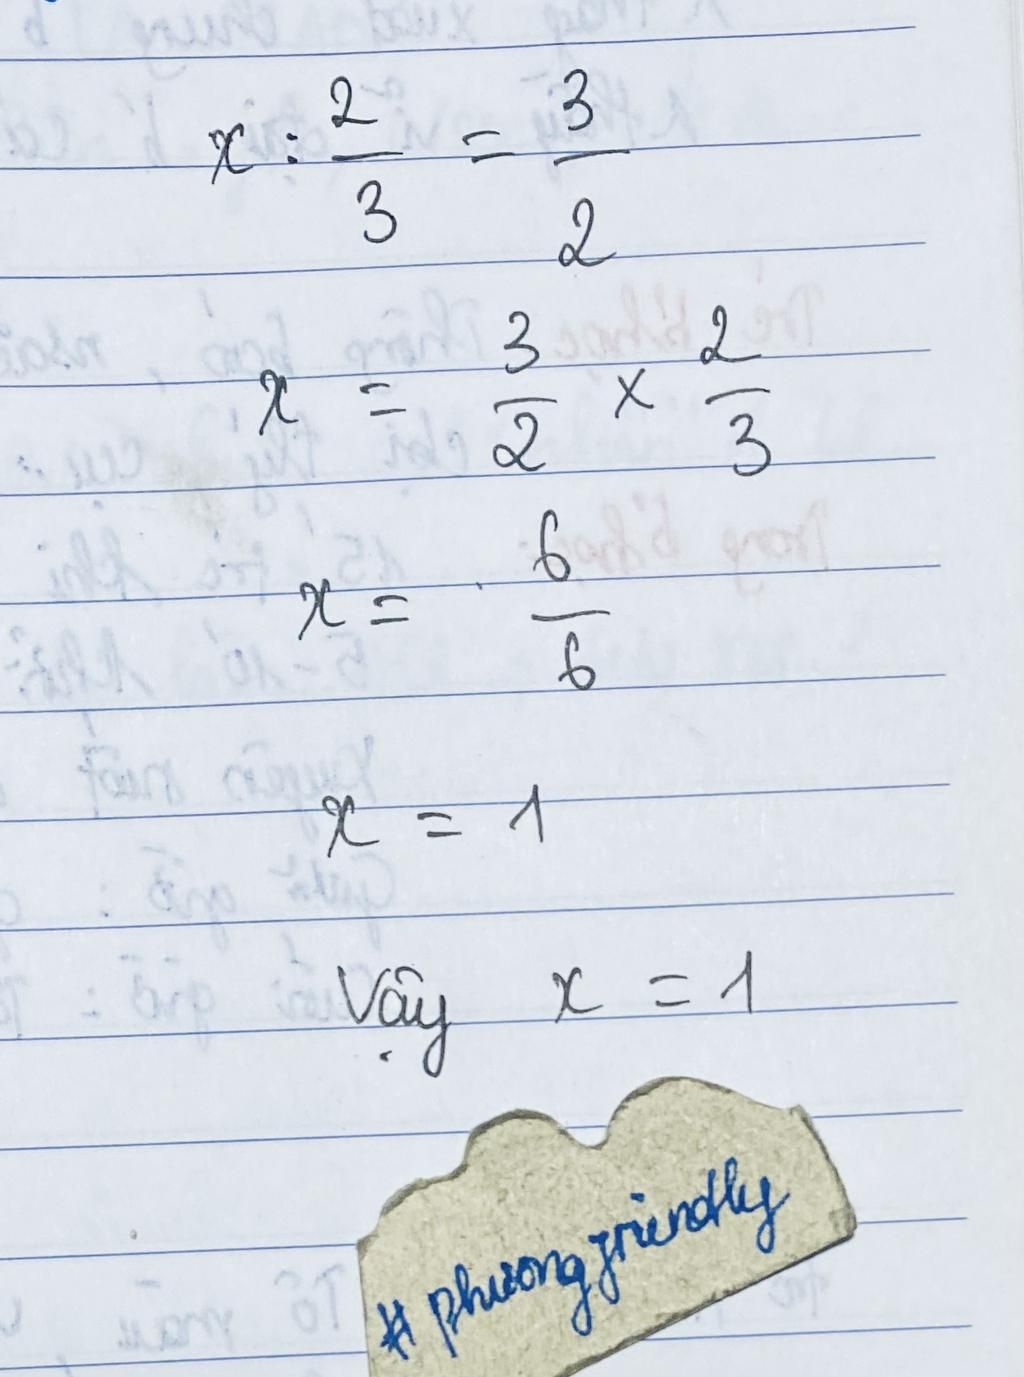 x : 2/3 = 3/2
x = 3/2 × 2/3
x = 6/6
x = 1
Vậy x = 1
# phuongfriendly